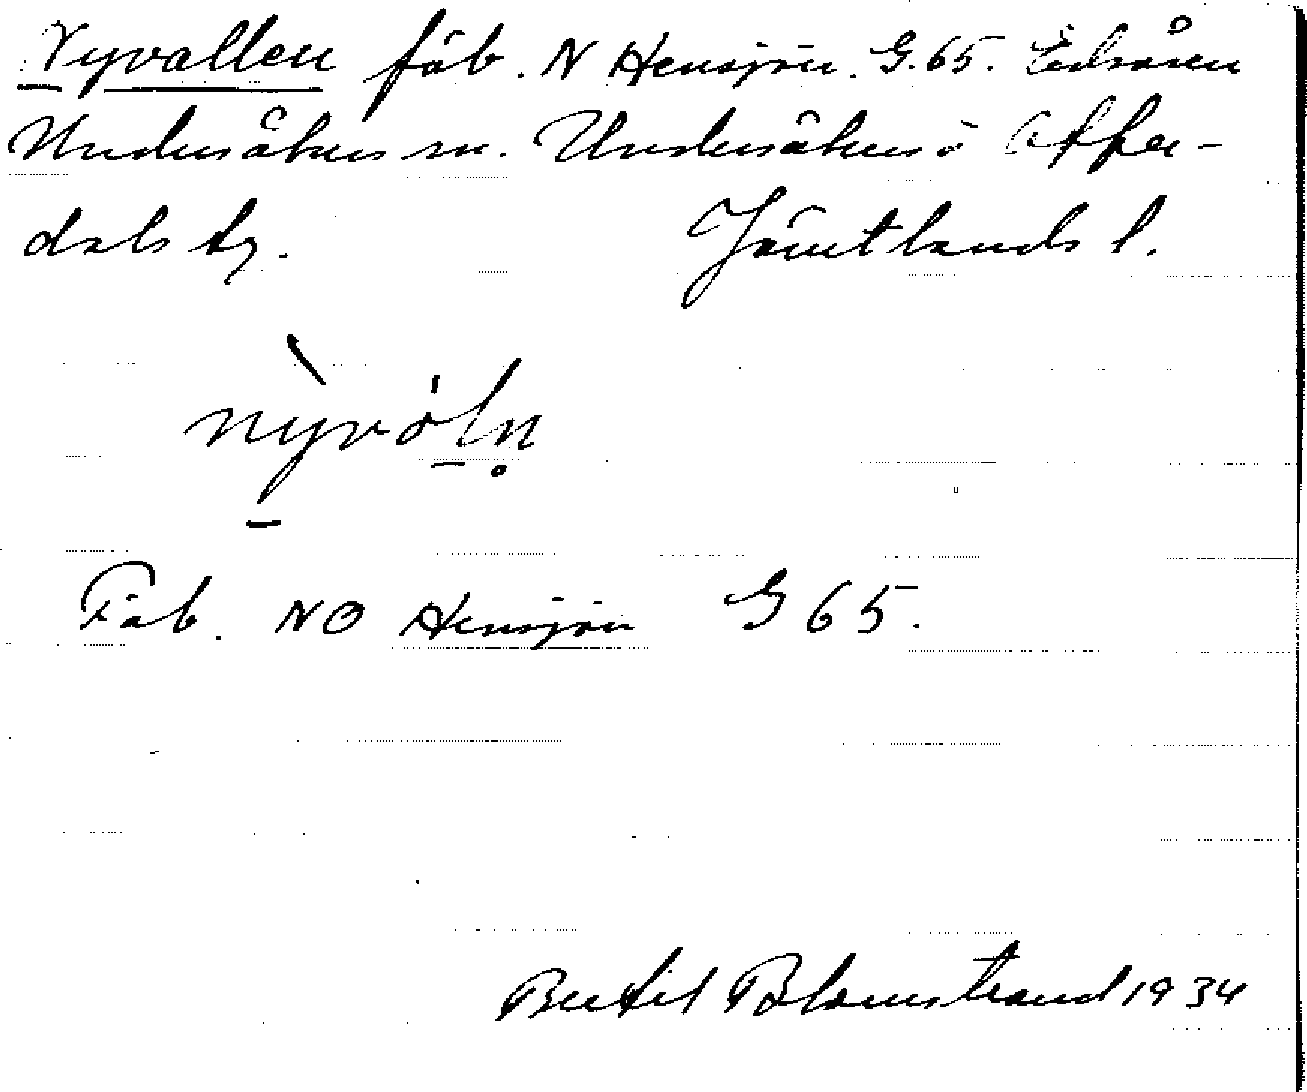 Nyvallen fäb. N Hensjön. G.65. Edsåsen
Undersåkers sn. Undersåkers o Offer-
dals tg. Jämtlands l.
nỳvóln̥
Fäb. NO Hensjön G 65.
Bertil Blomstrand 1934